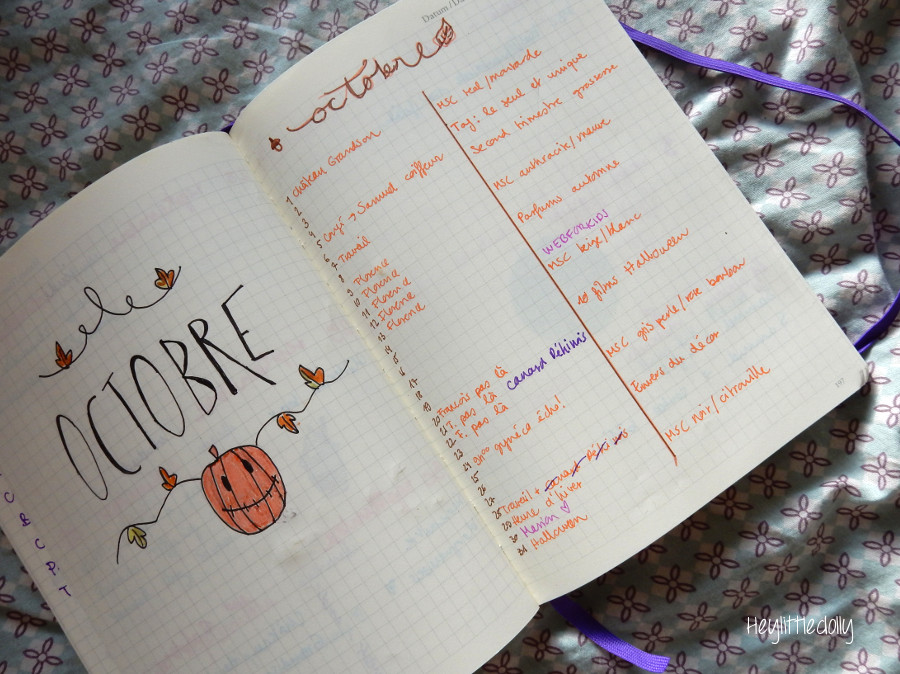 OCTOBRE
C
B
C
P.
T
Datum / Da
octobre
1 Château Grandson
2
3
4
5 Congé → Samuel coiffeur
6
7 Travail
8
9 Florence
10 Florence
11 Florence
12 Florence
13 Florence
14
15
16
17
18
19
20 François pas là
21 T. pas là canard Réhinis
22 T. pas là
23
24 gynéco écho!
25
26
27
28 Travail + canard Réhinis
29 Heure d'hiver
30 Marion
31 Halloween
MSC red/moutarde
Tag: le seul et unique
Second trimestre grossesse
MSC anthracite/mauve
Parfums automne
WEBFORKIDS
MSC beige/blanc
10 films Halloween
MSC gris perle/rose bonbon
Envers du décor
MSC noir/citrouille
197
Heylittledolly